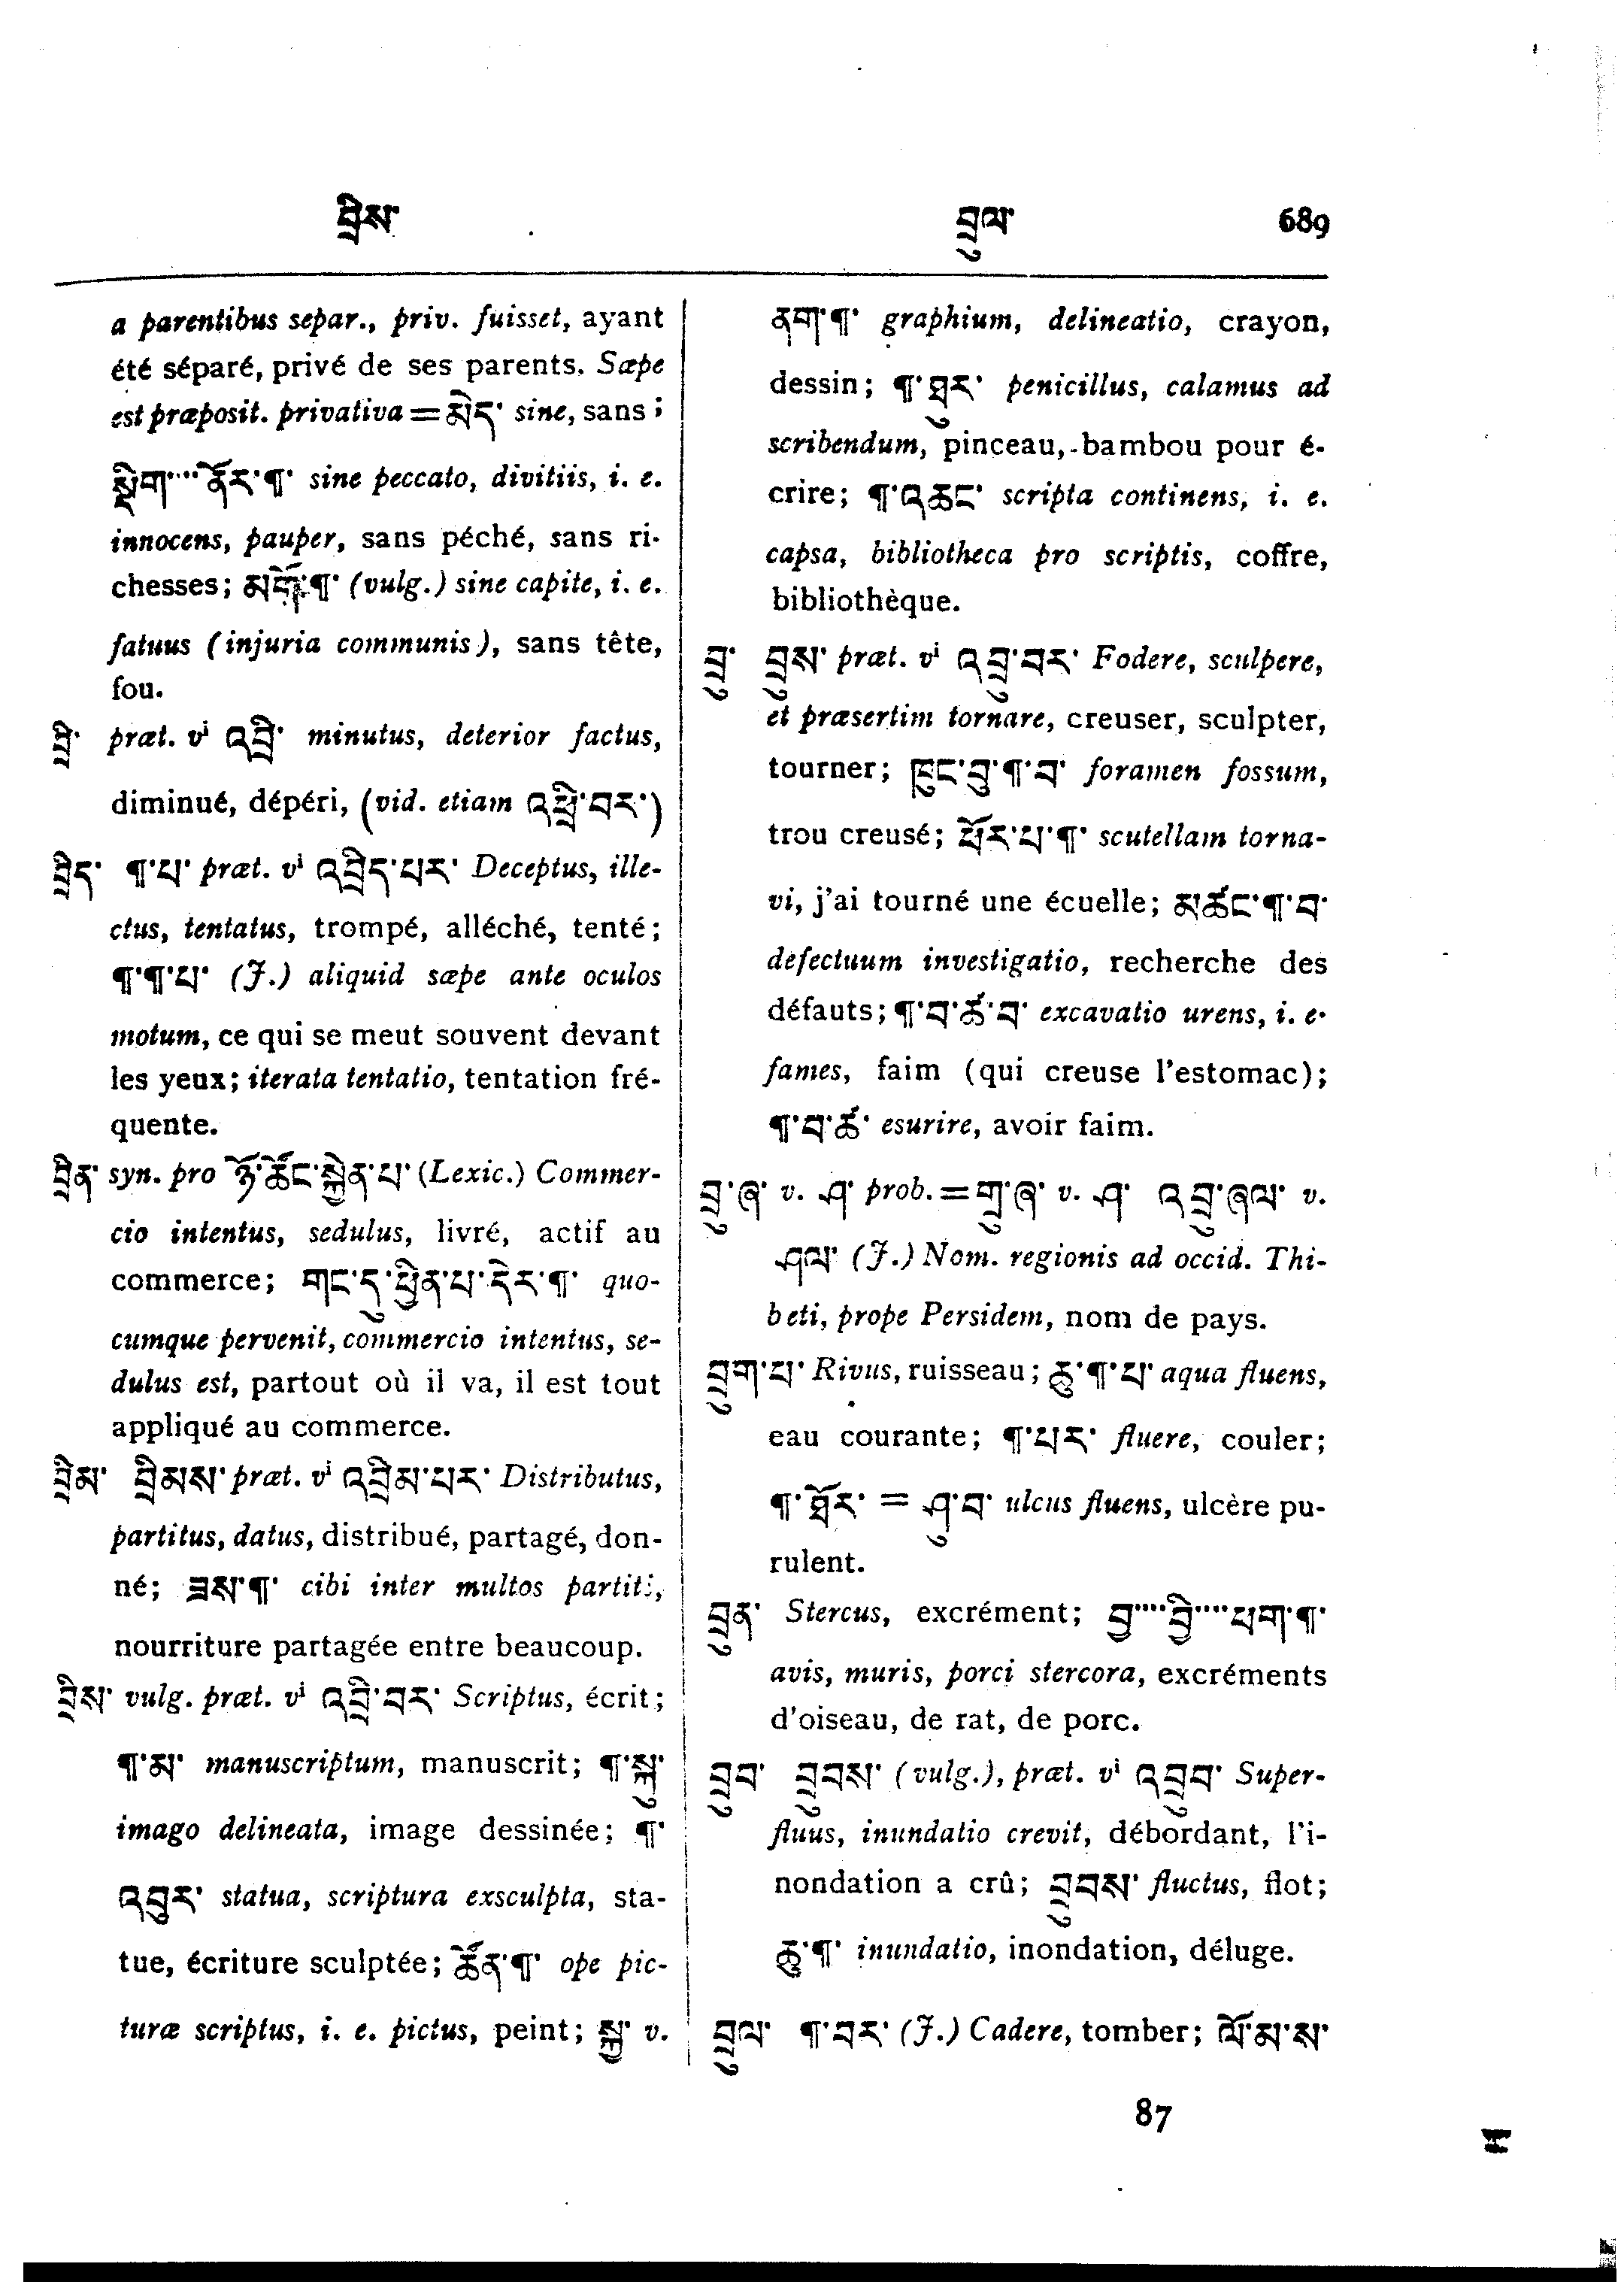 བྲིས་ བྲུལ་ 689
a parentibus separ., priv. fuisset, ayant
été séparé, privé de ses parents. Sæpe
est præposit. privativa = མེད་ sine, sans ;
སྡིག་···· ནོར་¶་ sine peccato, divitiis, i. e.
innocens, pauper, sans péché, sans ri-
chesses; མགོ་¶་ (vulg.) sine capite, i. e.
fatuus (injuria communis), sans tête,
fou.
བྲི་ præt. vⁱ འབྲི་ minutus, deterior factus,
diminué, dépéri, (vid. etiam འཕྲི་བར་)
བྲིད་ ¶་པ་ præt. vⁱ འབྲིད་པར་ Deceptus, ille-
ctus, tentatus, trompé, alléché, tenté;
¶་¶་པ་ (J.) aliquid sæpe ante oculos
motum, ce qui se meut souvent devant
les yeux; iterata tentatio, tentation fré-
quente.
བྲིན་ syn. pro ཉོ་ཚོང་སྐྱེན་པ་ (Lexic.) Commer-
cio intentus, sedulus, livré, actif au
commerce; གང་དུ་ཕྱིན་པ་དེར་¶་ quo-
cumque pervenit, commercio intentus, se-
dulus est, partout où il va, il est tout
appliqué au commerce.
བྲིམ་ བྲིམས་ præt. vⁱ འབྲིམ་པར་ Distributus,
partitus, datus, distribué, partagé, don-
né; ཟས་¶་ cibi inter multos partiti,
nourriture partagée entre beaucoup.
བྲིས་ vulg. præt. vⁱ འབྲི་བར་ Scriptus, écrit;
¶་མ་ manuscriptum, manuscrit; ¶་སྐུ་
imago delineata, image dessinée; ¶་
འབུར་ statua, scriptura exsculpta, sta-
tue, écriture sculptée; ཚོན་¶་ ope pic-
turæ scriptus, i. e. pictus, peint; སྐྱ་ v.
ནག་¶་ graphium, delineatio, crayon,
dessin; ¶་ཐུར་ penicillus, calamus ad
scribendum, pinceau, bambou pour é-
crire; ¶་འཆང་ scripta continens, i. e.
capsa, bibliotheca pro scriptis, coffre,
bibliothèque.
བྲུ་ བྲུས་ præt. vⁱ འབྲུ་བར་ Fodere, sculpere,
et præsertim tornare, creuser, sculpter,
tourner; ཁུང་བུ་¶་བ་ foramen fossum,
trou creusé; ཕོར་པ་¶་ scutellam torna-
vi, j'ai tourné une écuelle; མཚང་¶་བ་
defectuum investigatio, recherche des
défauts; ¶་བ་ཚ་བ་ excavatio urens, i. e.
fames, faim (qui creuse l'estomac);
¶་བ་ཚ་ esurire, avoir faim.
བྲུ་ཞ་ v. ཤ་ prob. = གྲུ་ཞ་ v. ཤ་ འབྲུ་ཞལ་ v.
ཤལ་ (J.) Nom. regionis ad occid. Thi-
beti, prope Persidem, nom de pays.
བྲུག་པ་ Rivus, ruisseau; ཆུ་¶་པ་ aqua fluens,
eau courante; ¶་པར་ fluere, couler;
¶་ཐོར་ = ཤུ་བ་ ulcus fluens, ulcère pu-
rulent.
བྲུན་ Stercus, excrément; བྱ་····བྱི་····ཕག་¶་
avis, muris, porci stercora, excréments
d'oiseau, de rat, de porc.
བྲུབ་ བྲུབས་ (vulg.), præt. vⁱ འབྲུབ་ Super-
fluus, inundatio crevit, débordant, l'i-
nondation a crû; བྲུབས་ fluctus, flot;
ཆུ་¶་ inundatio, inondation, déluge.
བྲུལ་ ¶་བར་ (J.) Cadere, tomber; ལོ་མ་ས་
87